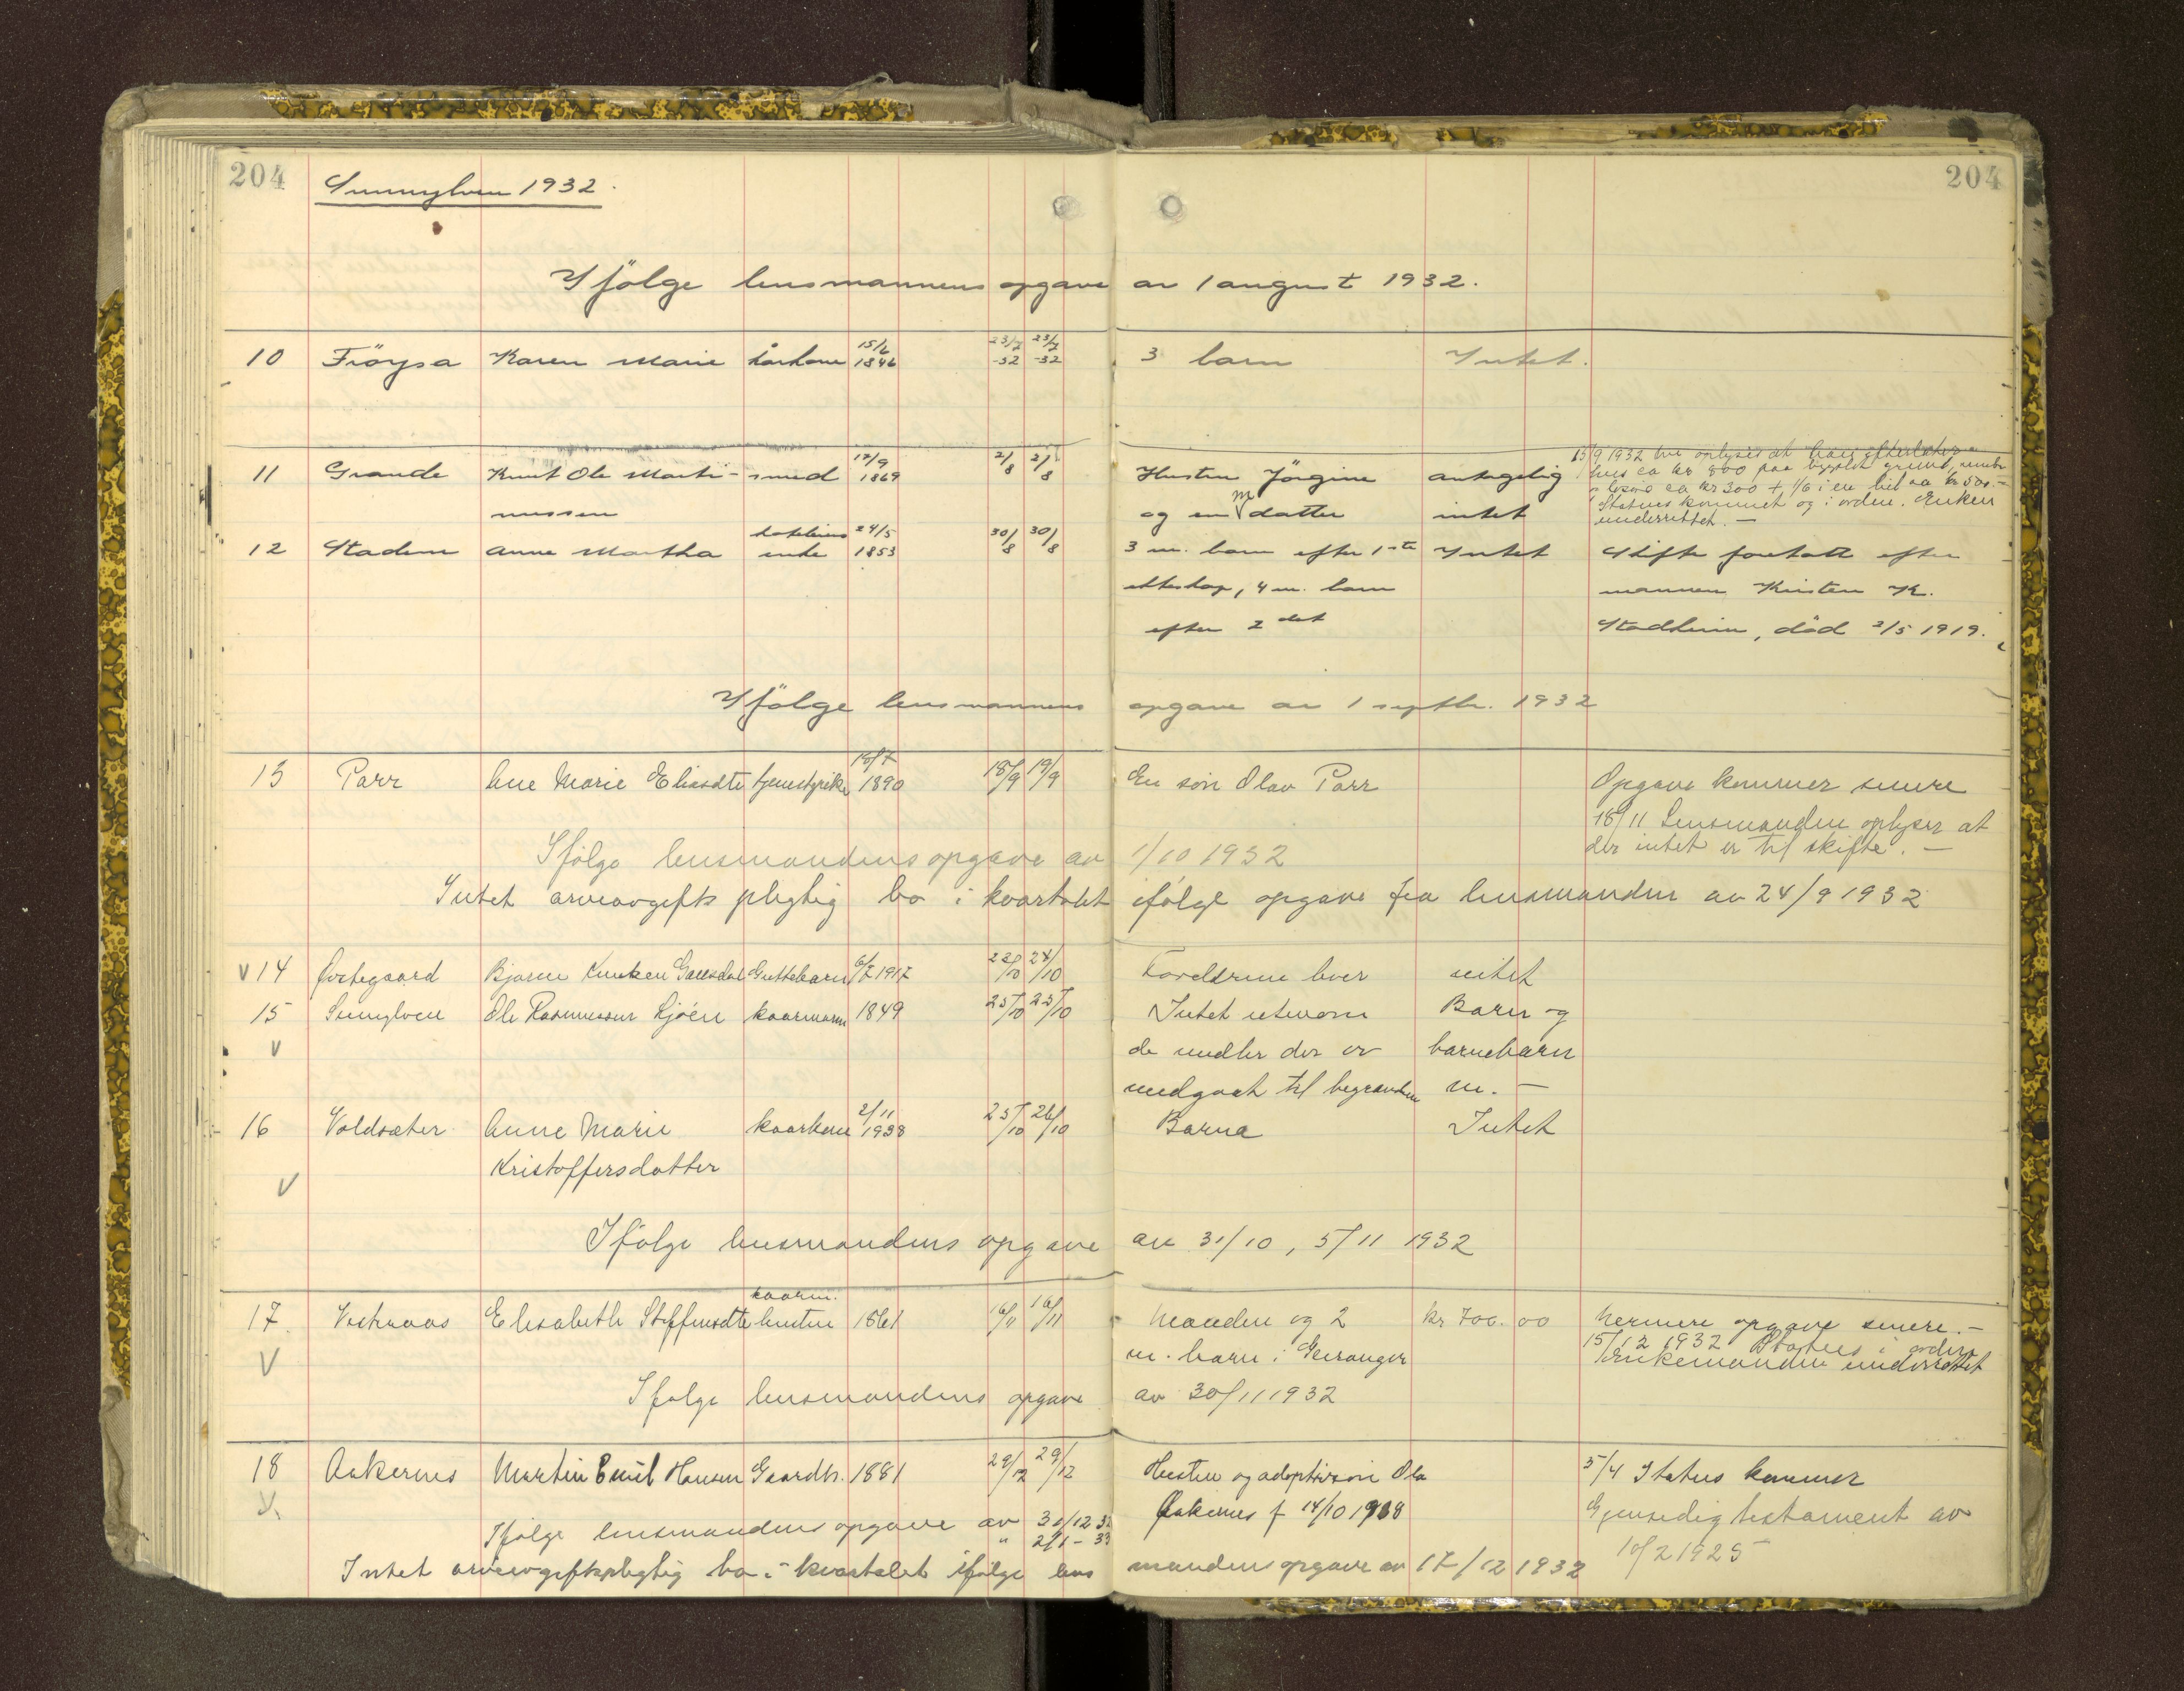 204
204
Sunnylven 1932.
Ifölge lensmannens opgave av 1 august 1932.
10 Fröysa Karen Marie kårkone 15/6 1846 23/7 -32 23/7 -32 3 barn Intet.
11 Grande Knut Ole Marti- smed 17/9 1869 2/8 2/8 Hustru Jörgine antagelig
nussen og en M datter intet
15/9 1932 hus ca kr 800 paa bygslet grund,
ca kr 300 + 1/6 i en bil aa kr 500.-
Status kommet og i orden. Enken
underrettet. -
12 Stadem Anne Martha enke 24/5 1853 30/8 30/8 3 m. barn efter 1ste Intet Skifte foretatt efter
ekteskap, 4 m. barn mannen Kristen K.
efter 2det Stadheim, död 2/5 1919.
Ifölge lensmannens opgave av 1 septbr. 1932
13 Parr Ane Marie Eliasdtr 18/7 1890 18/9 19/9 En sön Olav Parr Opgave kommer senere
18/11 Lensmanden oplyser at
der intet er til skifte. -
Ifölge lensmandens opgave av 1/10 1932
Intet arveavgiftspligtig bo i kvartalet ifölge opgave fra lensmanden av 24/9 1932
V 14 Østegaard Bjarne Knutsen Guttebarn 6/7 1917 22/10 24/10 Foreldrene lever intet
15 Sunnylven Ole Rasmussen kaarmann 1849 25/10 25/10 Intet utenom Barn og
V de midler der er barnebarn
medgaat til begravelsen m. -
16 Voldsæter Anne Marie kaarkone 2/11 1938 25/10 26/10 Barna Intet
Kristoffersdatter
V
Ifölge lensmandens opgave av 31/10, 5/11 1932
17 Vestraas Elisabeth Steffensdtr kaarm. hustru 1861 16/11 16/11 Manden og 2 kr 700.00 Nermere opgave senere. -
V m. barn i Geiranger 15/12 1932 Status i orden
Enkemanden underrettet
Ifølge lensmandens opgave av 30/11 1932
18 Aakernes Martin Emil Hansen Gaardbr. 1881 29/12 29/12 Hustru og adoptivsön Ola 5/4 Status kommer
V. Aakernes f 14/10 1908 Gjensidig testament av
10/2 1925
Ifølge lensmandens opgave av 31/12 32
" 2/1 - 33
Intet arveavgiftspligtig bo i kvartalet ifölge lens mandens opgave av 17/12 1932